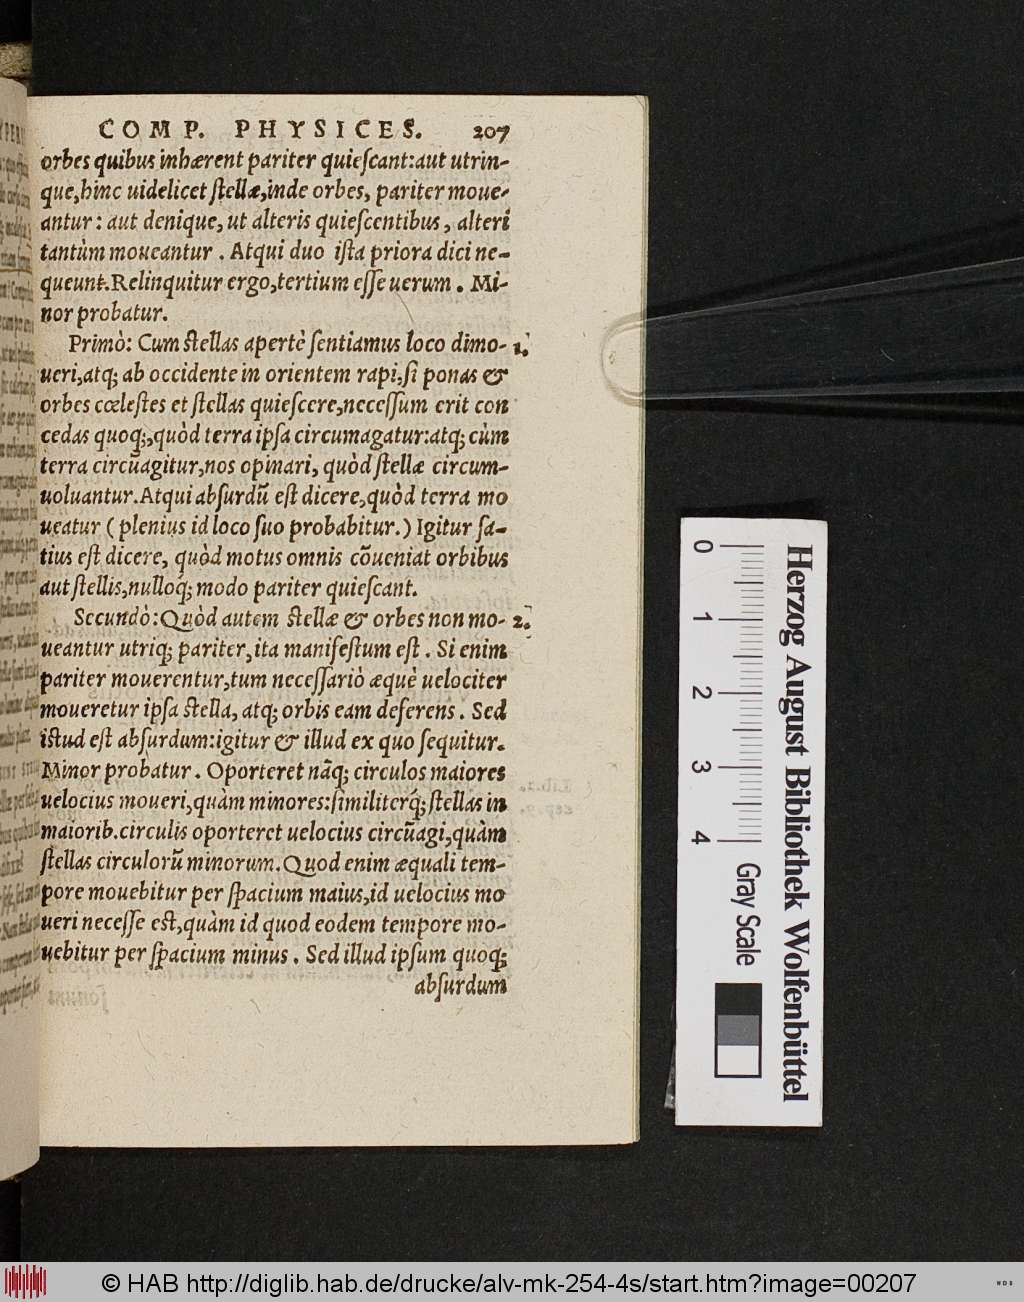 COMP. PHYSICES. 207
orbes quibus inhærent pariter quieſcant: aut utrin-
que, hinc uidelicet ſtellæ, inde orbes, pariter moue-
antur: aut denique, ut alteris quieſcentibus, alteri
tantùm moueantur. Atqui duo iſta priora dici ne-
queunt. Relinquitur ergo, tertium eſſe uerum. Mi-
nor probatur.
Primò: Cum ſtellas apertè ſentiamus loco dimo- 1.
ueri, atq; ab occidente in orientem rapi, ſi ponas &
orbes cœleſtes et ſtellas quieſcere, neceſſum erit con
cedas quoq;, quòd terra ipſa circumagatur: atq; cùm
terra circũagitur, nos opinari, quòd ſtellæ circum-
uoluantur. Atqui abſurdũ eſt dicere, quòd terra mo
ueatur (plenius id loco ſuo probabitur.) Igitur ſa-
tius eſt dicere, quòd motus omnis cõueniat orbibus
aut ſtellis, nulloq́; modo pariter quieſcant.
Secundò: Quòd autem ſtellæ & orbes non mo- 2.
ueantur utriq; pariter, ita manifeſtum eſt. Si enim
pariter mouerentur, tum neceſſariò æquè uelociter
moueretur ipſa ſtella, atq; orbis eam deferens. Sed
iſtud eſt abſurdum: igitur & illud ex quo ſequitur.
Minor probatur. Oporteret nãq; circulos maiores
uelocius moueri, quàm minores: ſimiliterq́; ſtellas in
maiorib. circulis oporteret uelocius circũagi, quàm
ſtellas circulorũ minorum. Quod enim æquali tem-
pore mouebitur per ſpacium maius, id uelocius mo
ueri neceſſe eſt, quàm id quod eodem tempore mo-
uebitur per ſpacium minus. Sed illud ipſum quoq;
abſurdum
0 1 2 3 4
Gray Scale
Herzog August Bibliothek Wolfenbüttel
© HAB http://diglib.hab.de/drucke/alv-mk-254-4s/start.htm?image=00207